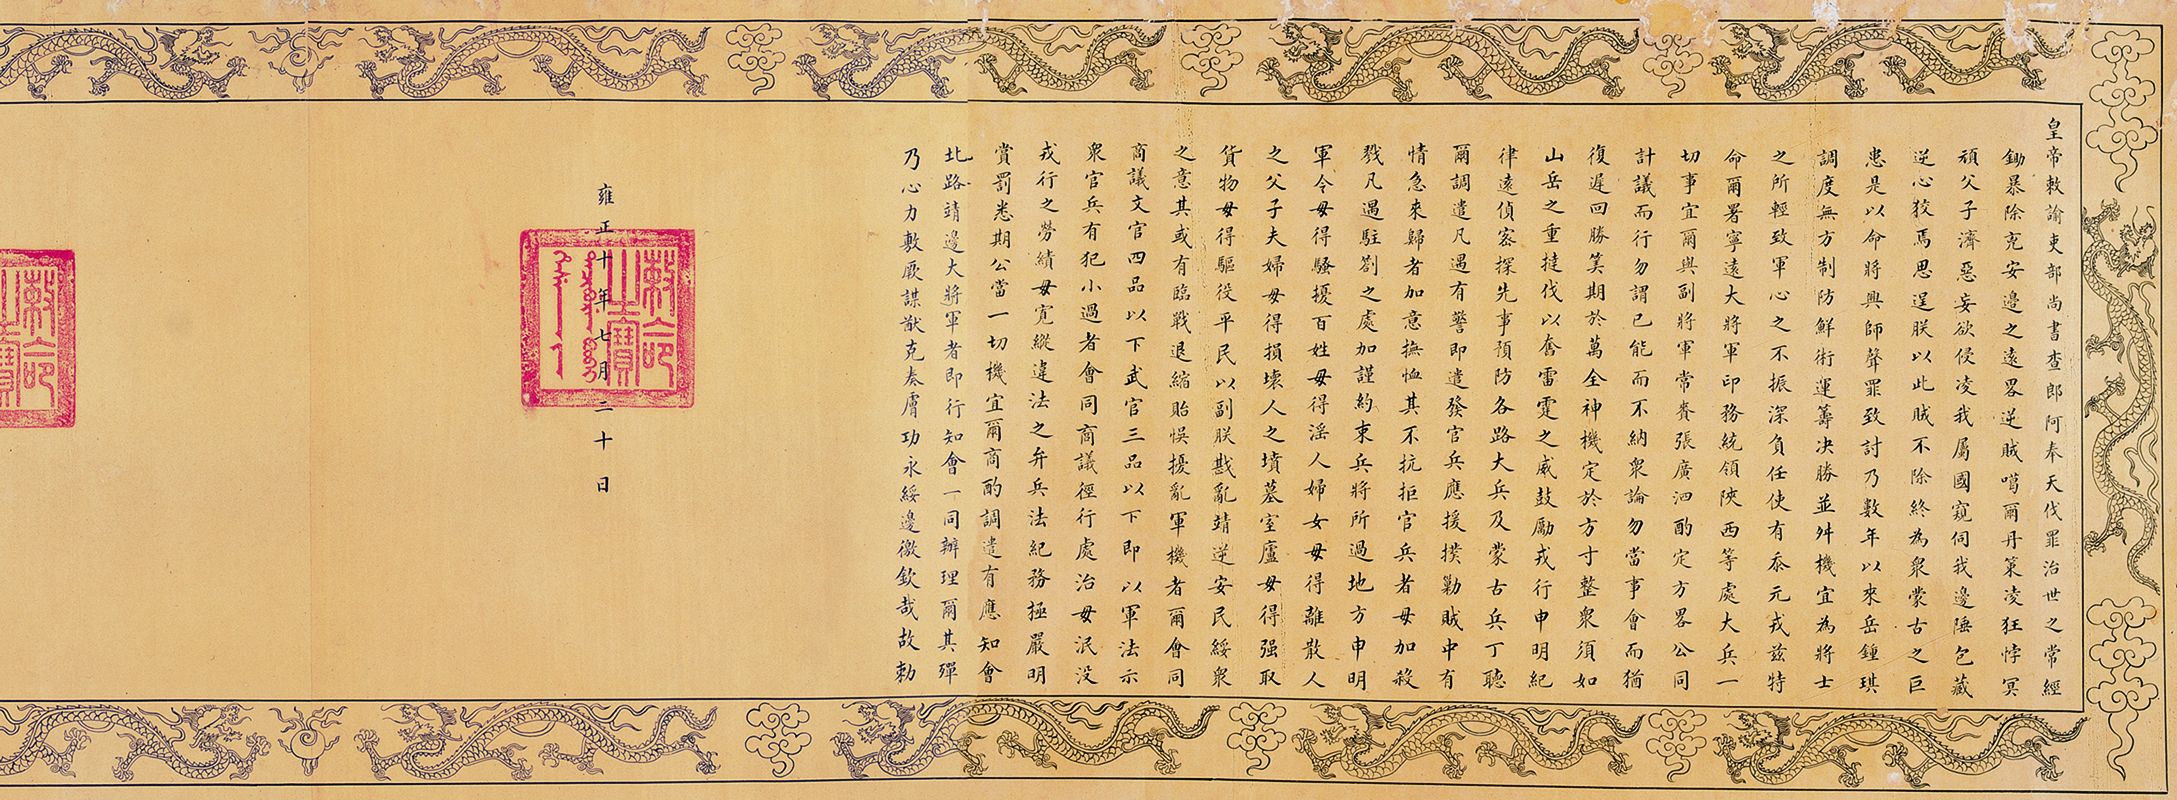 皇帝敕諭吏部尚書查郎阿奉天伐罪治世之常經
鋤暴除兇安邊之遠畧逆賊噶爾丹策凌狂悖冥
頑父子濟惡妄欲侵凌我屬國窺伺我邊陲包藏
逆心狡焉思逞朕以此賊不除終為衆蒙古之巨
患是以命將興師聲罪致討乃數年以來岳鍾琪
調度無方制防鮮術運籌决勝並舛機宜為將士
之所輕致軍心之不振深負任使有忝元戎兹特
命爾署寧遠大將軍印務統領陝西等處大兵一
切事宜爾與副將軍常賚張廣泗酌定方畧公同
計議而行勿謂已能而不納衆論勿當事會而猶
復遲回勝筭期於萬全神機定於方寸整衆須如
山岳之重撻伐以奮雷霆之威鼓勵戎行申明紀
律遠偵宻探先事預防各路大兵及蒙古兵丁聽
爾調遣凡遇有警即遣發官兵應援撲勦賊中有
情急來歸者加意撫恤其不抗拒官兵者毋加殺
戮凡遇駐劄之處加謹約束兵將所過地方申明
軍令毋得騷擾百姓毋得淫人婦女毋得離散人
之父子夫婦毋得損壞人之墳墓室廬毋得强取
貨物毋得驅役平民以副朕戡亂靖逆安民綏衆
之意其或有臨戰退縮貽悞擾亂軍機者爾會同
商議文官四品以下武官三品以下即以軍法示
衆官兵有犯小過者會同商議徑行處治毋泯没
戎行之勞績毋寬縱違法之弁兵法紀務極嚴明
賞罰悉期公當一切機宜爾商酌調遣有應知會
北路靖邊大將軍者即行知會一同辦理爾其殫
乃心力敷厥謀猷克奏膚功永綏邊徼欽哉故勅
雍正十年七月二十日
敕命之寶
敕命
寶